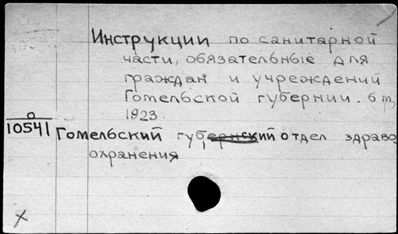 Инструкции по санитарной
части, обязательные для
граждан и учреждений
Гомельской губернии. б.m,
1923.
0
10541
Гомельский губ отдел здраво
охранения
X